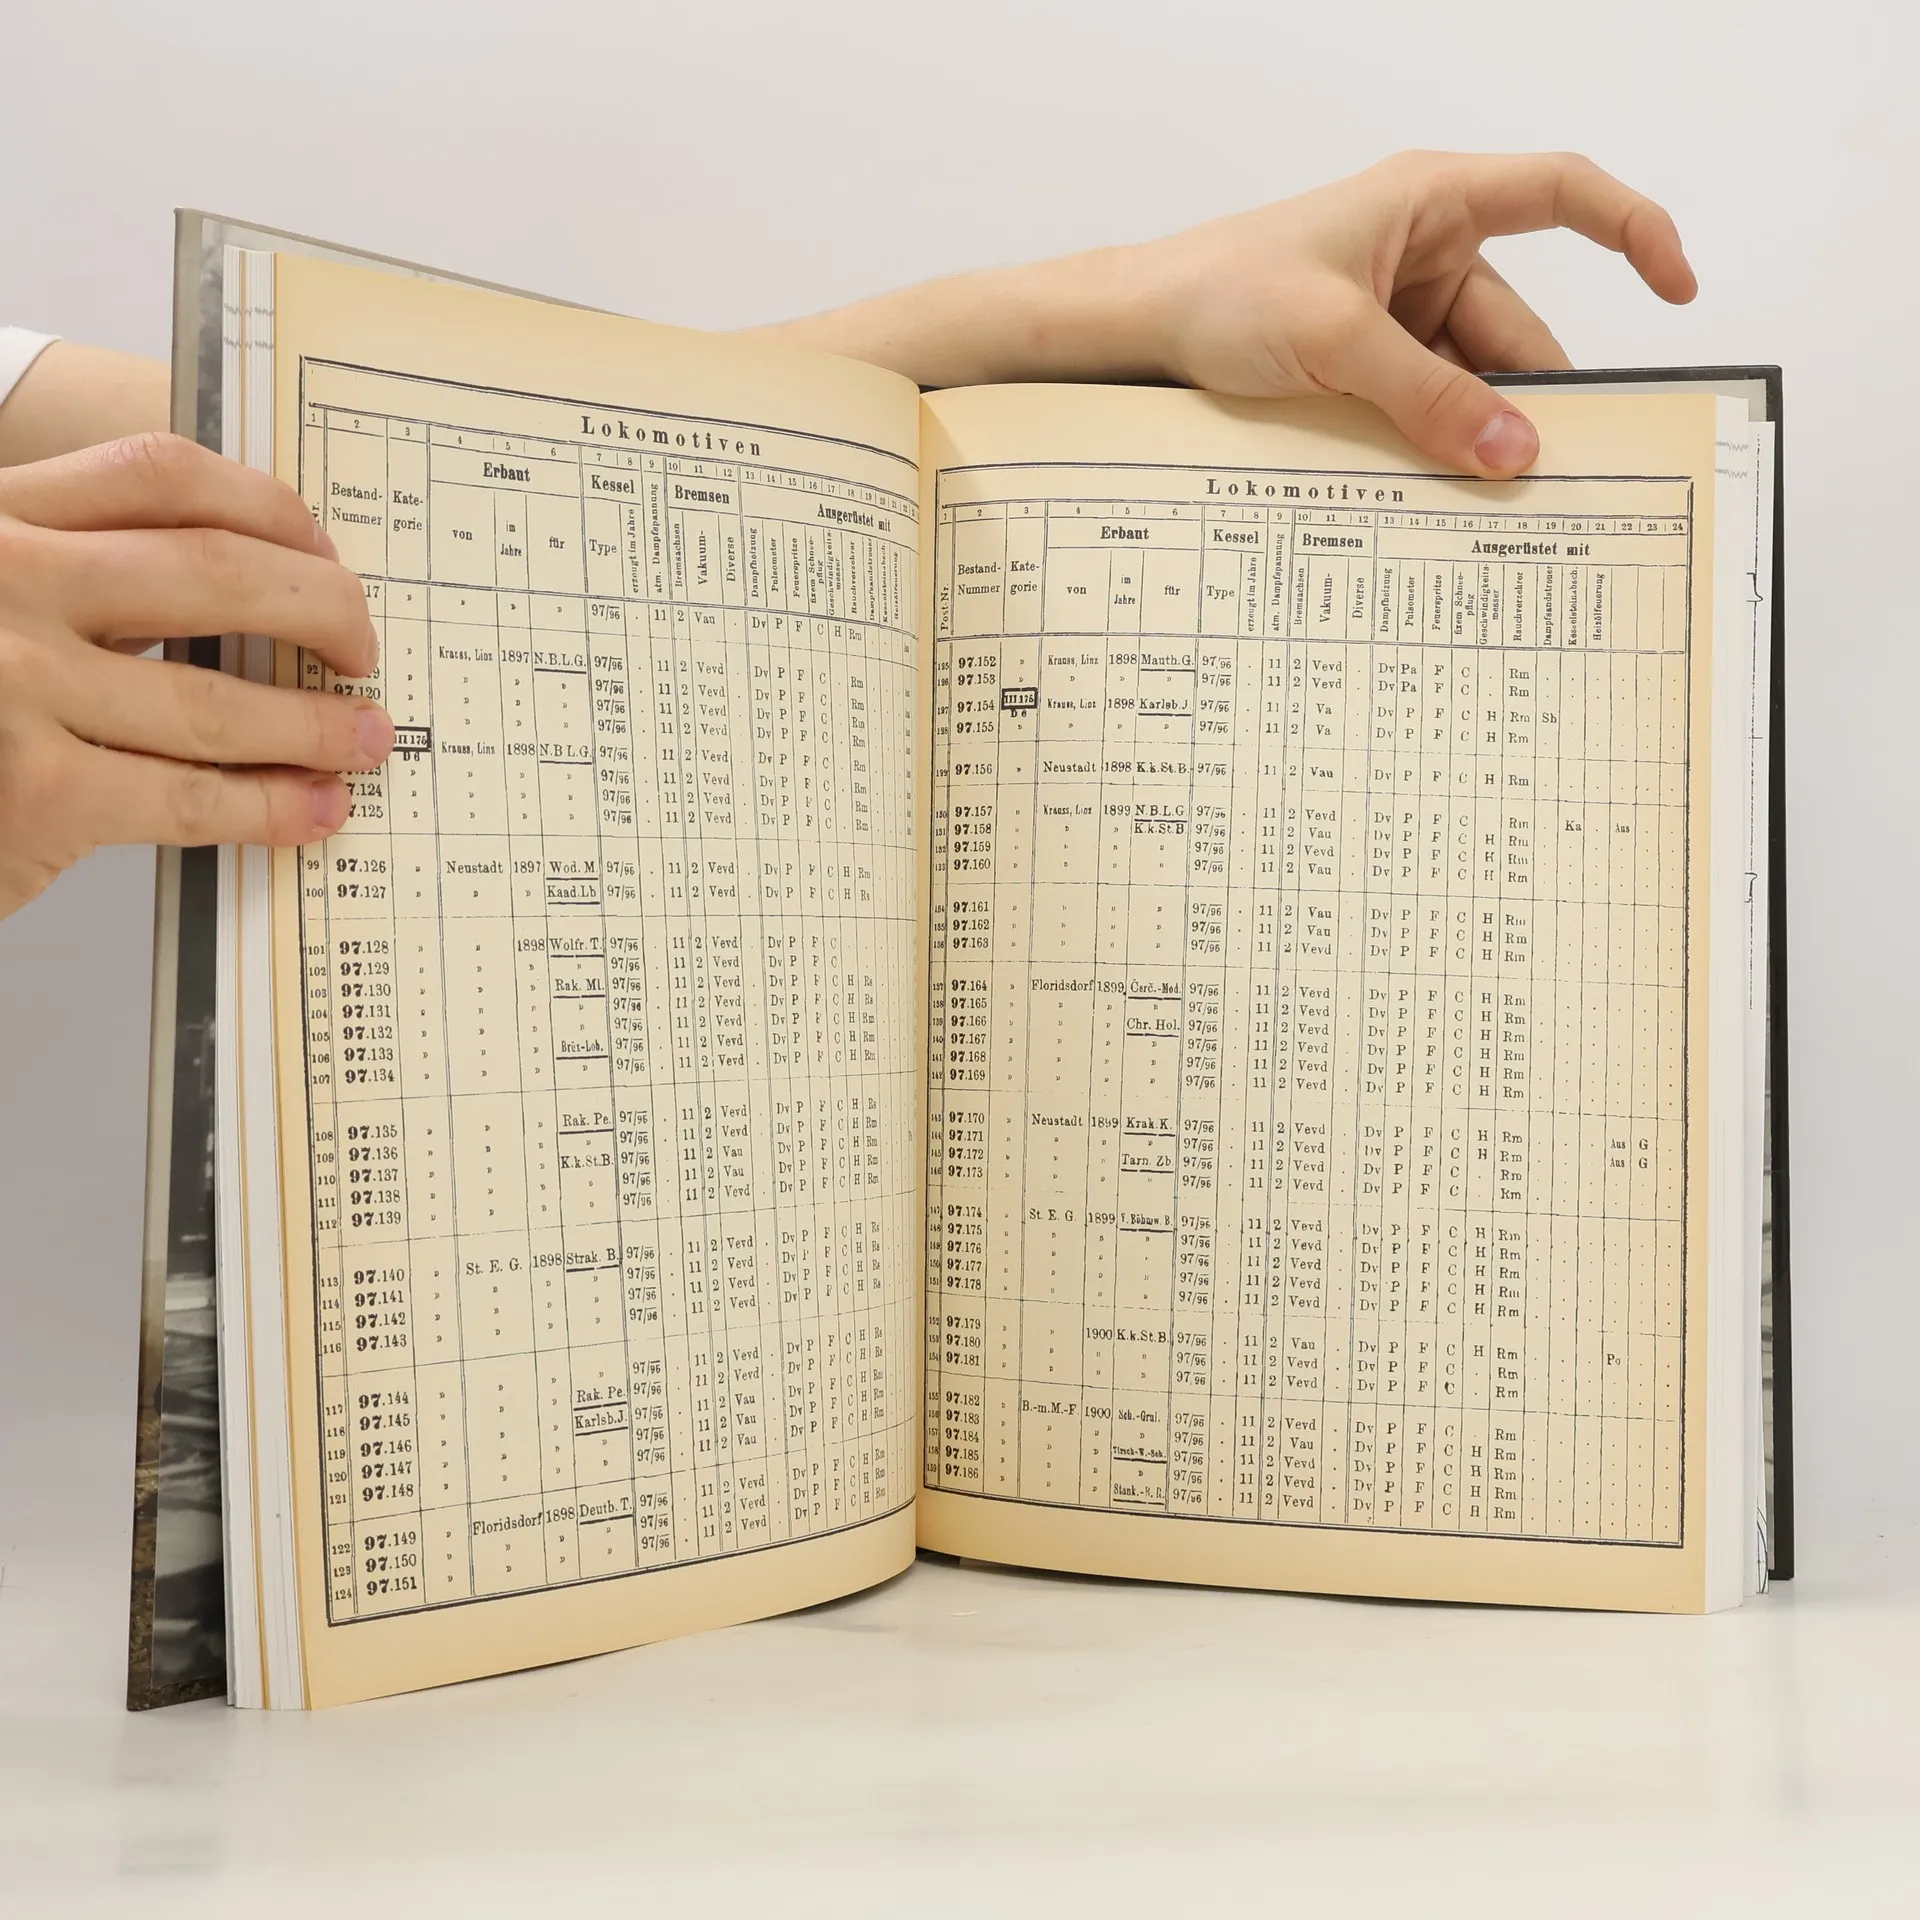 Lokomotiven
1 2 3 4 5 6 7 8 9 10 11 12 13 14 15 16 17 18 19 20 21
Bestand-Nummer Kate-gorie Erbaut Kessel atm. Dampfspannung Bremsen Ausgerüstet mit
von im Jahre für Type erzeugt im Jahre Bremsachsen Vakuum- Diverse Dampfheizung Pulsometer Feuerspritze fixem Schnee-pflug Geschwindigkeits-messer Rauchverzehrer Dampfsandstreuer Kesselsteinabsch. Heizölfeuerung
17 » » » » 97/96 . 11 2 Van . Dv P F C H Rm
» Krauss, Linz 1897 N.B.L.G. 97/96 . 11 2 Vevd . Dv P F C . Rm
92 » » » » 97/96 . 11 2 Vevd . Dv P F C . Rm
97.120 » » » » 97/96 . 11 2 Vevd . Dv P F C . Rm
» » » » 97/96 . 11 2 Vevd . Dv P F C . Rm
III 175 D 6 Krauss, Linz 1898 N.B.L.G. 97/96 . 11 2 Vevd . Dv P F C . Rm
.123 » » » » 97/96 . 11 2 Vevd . Dv P F C . Rm
7.124 » » » » 97/96 . 11 2 Vevd . Dv P F C . Rm
7.125 » » » » 97/96 . 11 2 Vevd . Dv P F C . Rm
99 97.126 » Neustadt 1897 Wod. M. 97/96 . 11 2 Vevd . Dv P F C H Rm
100 97.127 » » » Kaad.Lb 97/96 . 11 2 Vevd . Dv P F C H Rs
101 97.128 » » 1898 Wolfr. T. 97/96 . 11 2 Vevd . Dv P F C
102 97.129 » » » » 97/96 . 11 2 Vevd . Dv P F C
103 97.130 » » » Rak. Ml. 97/96 . 11 2 Vevd . Dv P F C H Rs
104 97.131 » » » » 97/96 . 11 2 Vevd . Dv P F C H Rs
105 97.132 » » » » 97/96 . 11 2 Vevd . Dv P F C H Rm
106 97.133 » » » Brüx-Lob. 97/96 . 11 2 Vevd . Dv P F C H Rm
107 97.134 » » » » 97/96 . 11 2 Vevd . Dv P F C H Rm
108 97.135 » » » Rak. Pe. 97/96 . 11 2 Vevd . Dv P F C H Rs
109 97.136 » » » » 97/96 . 11 2 Vevd . Dv P F C H Rm
110 97.137 » » » K.k.St.B. 97/96 . 11 2 Vau . Dv P F C H Rm
111 97.138 » » » » 97/96 . 11 2 Vau . Dv P F C H Rm
112 97.139 » » » » 97/96 . 11 2 Vevd . Dv P F C H Rm
113 97.140 » St. E. G. 1898 Strak. B. 97/96 . 11 2 Vevd . Dv P F C H Rs
114 97.141 » » » » 97/96 . 11 2 Vevd . Dv P F C H Rs
115 97.142 » » » » 97/96 . 11 2 Vevd . Dv P F C H Rs
116 97.143 » » » » 97/96 . 11 2 Vevd . Dv P F C H Rs
117 97.144 » » » » 97/96 . 11 2 Vevd . Dv P F C H Rs
118 97.145 » » » Rak. Pe. 97/96 . 11 2 Vevd . Dv P F C H Rs
119 97.146 » » » Karlsb.J. 97/96 . 11 2 Vau . Dv P F C H Rm
120 97.147 » » » » 97/96 . 11 2 Vau . Dv P F C H Rm
121 97.148 » » » » 97/96 . 11 2 Vau . Dv P F C H Rm
122 97.149 » Floridsdorf 1898 Deutb. T. 97/96 . 11 2 Vevd . Dv P F C H Rm
123 97.150 » » » » 97/96 . 11 2 Vevd . Dv P F C H Rm
124 97.151 » » » » 97/96 . 11 2 Vevd . Dv P F C H Rm
Lokomotiven
1 2 3 4 5 6 7 8 9 10 11 12 13 14 15 16 17 18 19 20 21 22 23 24
Post-Nr. Bestand-Nummer Kate-gorie Erbaut Kessel atm. Dampfspannung Bremsen Ausgerüstet mit
von im Jahre für Type erzeugt im Jahre Bremsachsen Vakuum- Diverse Dampfheizung Pulsometer Feuerspritze fixem Schnee-pflug Geschwindigkeits-messer Rauchverzehrer Dampfsandstreuer Kesselsteinabsch. Heizölfeuerung
125 97.152 » Krauss, Linz 1898 Mauth.G. 97/96 . 11 2 Vevd . Dv Pa F C . Rm
126 97.153 » » » » 97/96 . 11 2 Vevd . Dv Pa F C . Rm
127 97.154 III 175 D 6 Krauss, Linz 1898 Karlsb.J 97/96 . 11 2 Va . Dv P F C H Rm Sb
128 97.155 » » » » 97/96 . 11 2 Va . Dv P F C H Rm
129 97.156 » Neustadt 1898 K.k.St.B. 97/96 . 11 2 Vau . Dv P F C H Rm
130 97.157 » Krauss, Linz 1899 N.B.L.G. 97/96 . 11 2 Vevd . Dv P F C . Rm . Ka . Aus
131 97.158 » » » K.k.St.B 97/96 . 11 2 Vau . Dv P F C H Rm
132 97.159 » » » » 97/96 . 11 2 Vevd . Dv P F C H Rm
133 97.160 » » » » 97/96 . 11 2 Vau . Dv P F C H Rm
134 97.161 » » » » 97/96 . 11 2 Vau . Dv P F C H Rm
135 97.162 » » » » 97/96 . 11 2 Vau . Dv P F C H Rm
136 97.163 » » » » 97/96 . 11 2 Vevd . Dv P F C H Rm
137 97.164 » Floridsdorf 1899 Čerč.-Mod. 97/96 . 11 2 Vevd . Dv P F C H Rm
138 97.165 » » » » 97/96 . 11 2 Vevd . Dv P F C H Rm
139 97.166 » » » Chr. Hol. 97/96 . 11 2 Vevd . Dv P F C H Rm
140 97.167 » » » » 97/96 . 11 2 Vevd . Dv P F C H Rm
141 97.168 » » » » 97/96 . 11 2 Vevd . Dv P F C H Rm
142 97.169 » » » » 97/96 . 11 2 Vevd . Dv P F C H Rm
143 97.170 » Neustadt 1899 Krak.K. 97/96 . 11 2 Vevd . Dv P F C H Rm . . . Aus G
144 97.171 » » » » 97/96 . 11 2 Vevd . Dv P F C H Rm . . . Aus G
145 97.172 » » » Tarn. Zb. 97/96 . 11 2 Vevd . Dv P F C . Rm
146 97.173 » » » » 97/96 . 11 2 Vevd . Dv P F C . Rm
147 97.174 » St. E. G. 1899 V. Böhmw. B. 97/96 . 11 2 Vevd . Dv P F C H Rm
148 97.175 » » » » 97/96 . 11 2 Vevd . Dv P F C H Rm
149 97.176 » » » » 97/96 . 11 2 Vevd . Dv P F C H Rm
150 97.177 » » » » 97/96 . 11 2 Vevd . Dv P F C H Rm
151 97.178 » » » » 97/96 . 11 2 Vevd . Dv P F C H Rm
152 97.179 » » 1900 K.k.St.B. 97/96 . 11 2 Vau . Dv P F C H Rm . . . Po
153 97.180 » » » » 97/96 . 11 2 Vevd . Dv P F C . Rm
154 97.181 » » » » 97/96 . 11 2 Vevd . Dv P F C . Rm
155 97.182 » B.-m.M.-F. 1900 Sch.-Gral. 97/96 . 11 2 Vevd . Dv P F C . Rm
156 97.183 » » » » 97/96 . 11 2 Vau . Dv P F C H Rm
157 97.184 » » » Tirsch-W.-Sch. 97/96 . 11 2 Vevd . Dv P F C H Rm
158 97.185 » » » » 97/96 . 11 2 Vevd . Dv P F C H Rm
159 97.186 » » » Stank.-B. R. 97/96 . 11 2 Vevd . Dv P F C H Rm